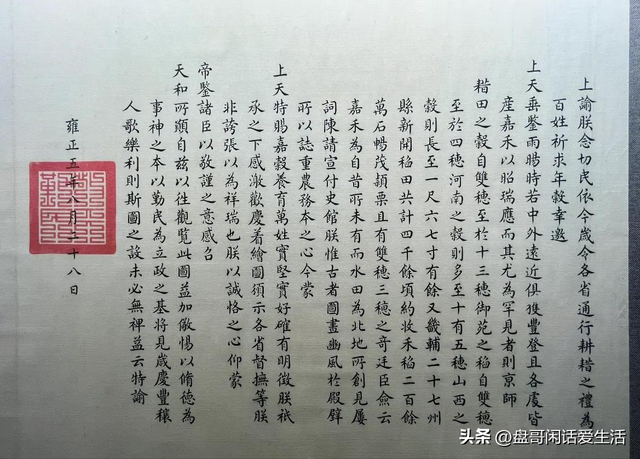 上諭朕念切民依今歲令各省通行耕耤之禮為
百姓祈求年穀幸邀
上天垂鑒雨暘時若中外遠近俱獲豐登且各處皆
產嘉禾以昭瑞應而其尤為罕見者則京師
耤田之穀自雙穗至於十三穗御苑之稻自雙穗
至於四穗河南之穀則多至十有五穗山西之
穀則長至一尺六七寸有餘又畿輔二十七州
縣新開稻田共計四千餘頃約收禾稻二百餘
萬石暢茂穎栗且有雙穗三穗之奇廷臣僉云
嘉禾為自昔所未有而水田為北地所創見屢
詞陳請宣付史館朕惟古者圖畫豳風於殿壁
所以誌重農務本之心今蒙
上天特賜嘉穀養育萬姓實堅實好確有明徵朕祇
承之下感激歡慶著繪圖頒示各省督撫等朕
非誇張以為祥瑞也朕以誠恪之心仰蒙
帝鑒諸臣以敬謹之意感召
天和所願自茲以往觀覽此圖益加儆惕以脩德為
事神之本以勤民為立政之基將見歲慶豐穰
人歌樂利則斯圖之設未必無裨益云特諭
雍正五年八月二十八日
头条 @盘哥闲话爱生活